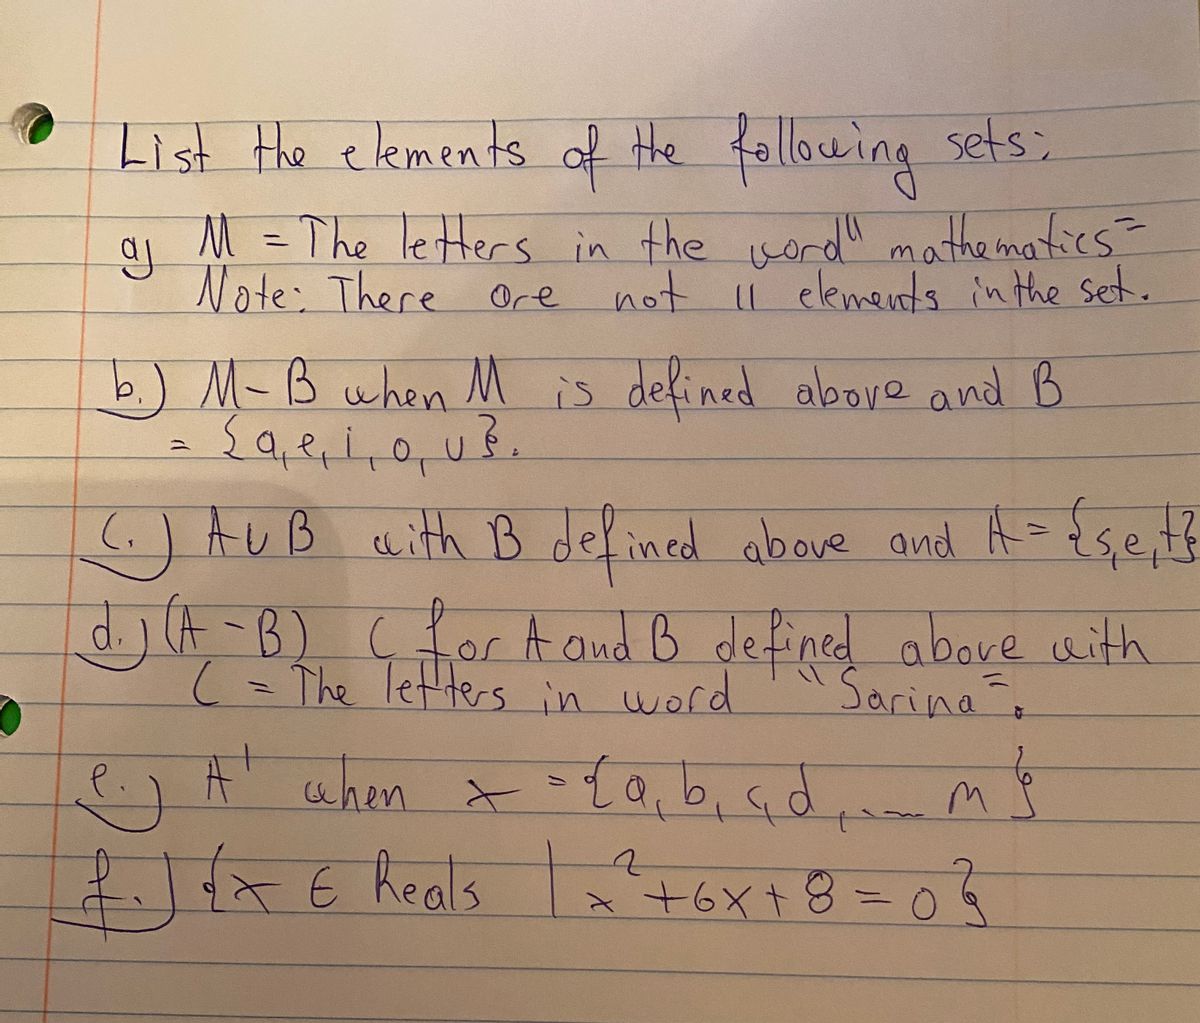 List the elements of the following sets:
a) M = The letters in the word "mathematics"
Note: There are not 11 elements in the set.
b.) M-B when M is defined above and B
= {a,e,i,o,u}.
c.) A∪B with B defined above and A={s,e,t}
d.) (A-B) C for A and B defined above with
C = The letters in word "Sarina".
e.) A' when x = {a,b,c,d,... m}
f.) {x ∈ Reals | x²+6x+8=0}